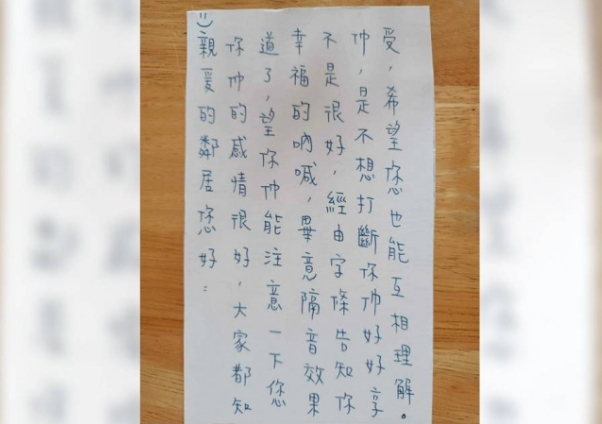 親愛的鄰居您好：
你们的感情很好，大家都知
道了，望你们能注意一下您
幸福的吶喊，畢意隔音效果
不是很好，經由字條告知你
们，是不想打斷你们好好享
受，希望您也能互相理解。